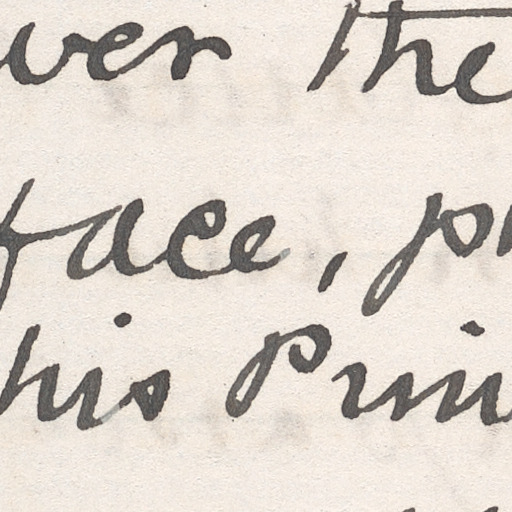 ver the
face, p
his Prin